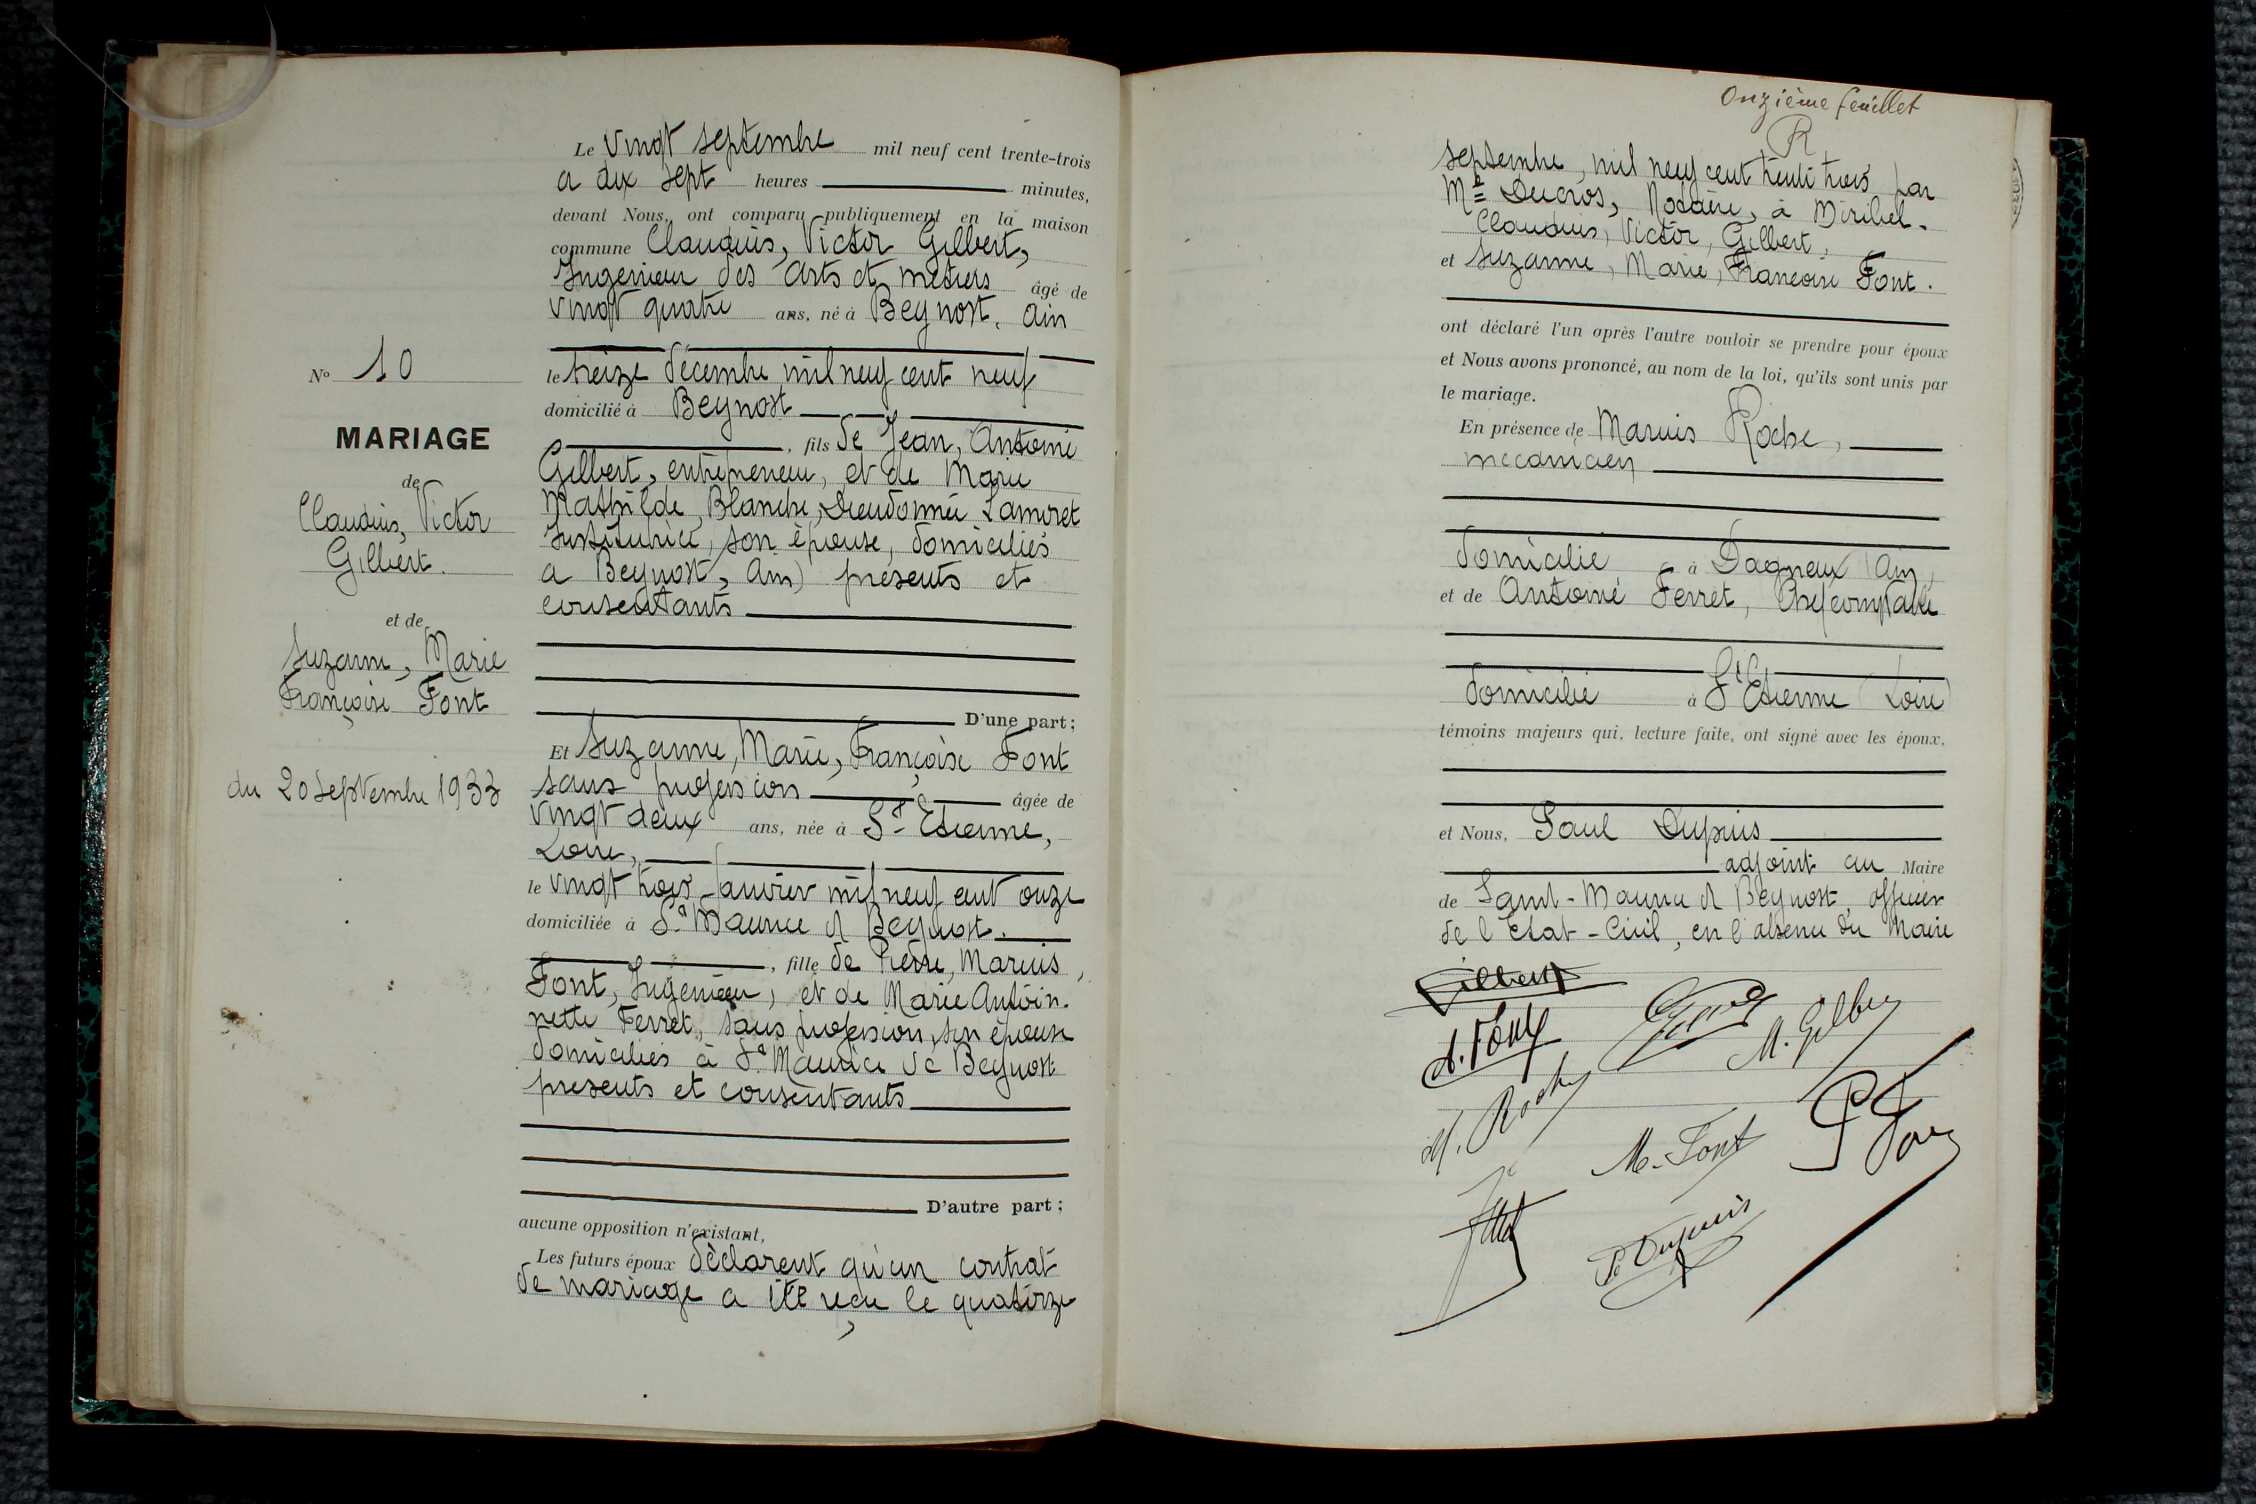 Le vingt septembre mil neuf cent trente-trois
a dix sept heures minutes,
devant Nous, ont comparu publiquement en la maison
commune Claudius, Victor Gilbert,
Ingenieur des Arts et metiers âgé de
vingt quatre ans, né à Beynost, Ain
le treize décembre mil neuf cent neuf
domicilié à Beynost
, fils de Jean, Antoine
Gilbert, entrepreneur, et de Marie
Mathilde, Blanche, Dieudonnée Lamoret
Institutrice, son épouse, domiciliés
a Beynost, Ain) présents et
consentants
D'une part;
Et Suzanne, Marie, Françoise Font
sans profession âgée de
vingt deux ans, née à St Etienne,
Loire,
le vingt trois Janvier mil neuf cent onze
domiciliée à St Maurice d Beynost.
, fille de Pierre, Marius,
Font, Ingénieur, et de Marie Antoin-
nette Ferret, sans profession, son épouse
domiciliés à St Maurice de Beynost
presents et consentants
D'autre part;
aucune opposition n'existant,
Les futurs époux déclarent qu'un contrat
de mariage a été reçu le quatorze
No 10
MARIAGE
de
Claudius, Victor
Gilbert.
et de
Suzanne, Marie
Françoise Font
du 20 septembre 1933
Onzième feuillet
R
septembre, mil neuf cent trente trois par
Me Ducros, Notaire, à Miribel.
Claudius, Victor, Gilbert,
et Suzanne, Marie, Francoise Font.
ont déclaré l'un après l'autre vouloir se prendre pour époux
et Nous avons prononcé, au nom de la loi, qu'ils sont unis par
le mariage.
En présence de Marius Roche,
mecanicien
domicilié à Dagneux (Ain)
et de Antoine Ferret, Chef comptable
domicilié à St Etienne (Loire)
témoins majeurs qui, lecture faite, ont signé avec les époux,
et Nous, Paul Dupuis
adjoint au Maire
de Saint-Maurice d Beynost, officier
de l'Etat-Civil, en l'absence du Maire
Gilbert
S. Font
M. Gilbert
M. Roche
M. Font
P Font
P. Dupuis